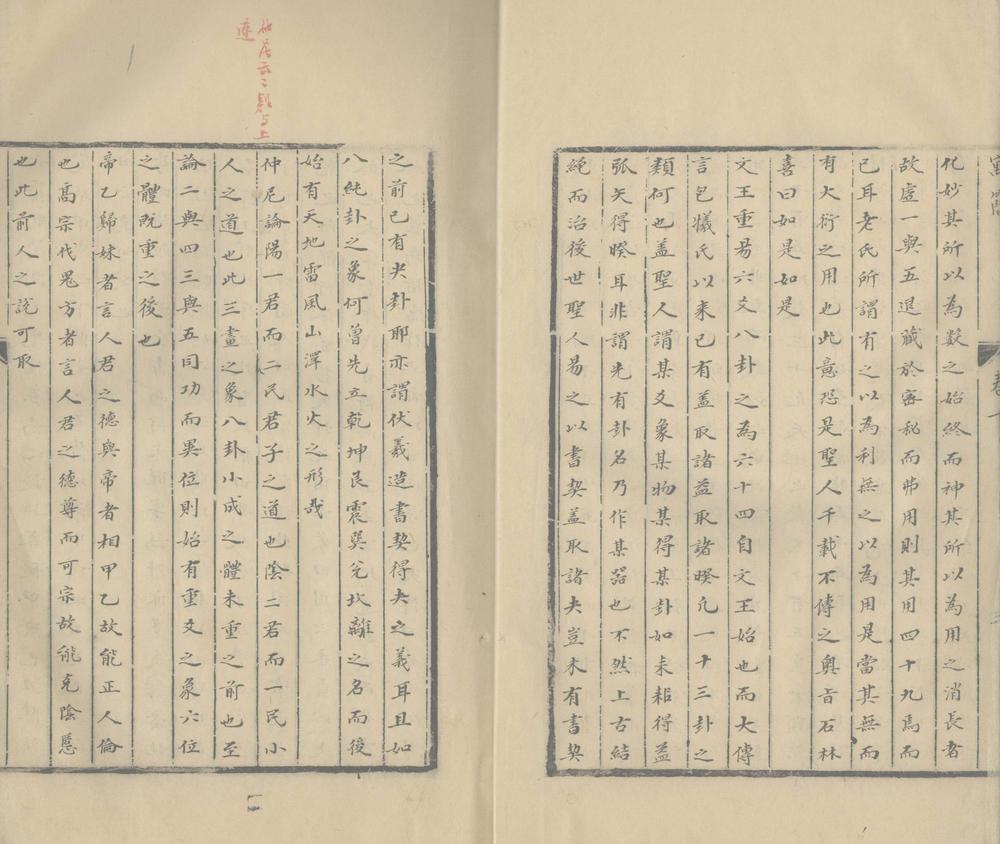 化妙其所以為數之始終而神其所以為用之消長者
故虛一與五退藏於密秘而弗用則其用四十九焉而
已耳老氏所謂有之以為利無之以為用是當其無而
有大衍之用也此意恐是聖人千載不傳之奧旨石林
喜曰如是如是
文王重昜六爻八卦之為六十四自文王始也而大傳
言包犧氏以来已有盖取諸益取諸暌凢一十三卦之
類何也盖聖人謂某爻象某物某得某卦如耒耜得益
弧矢得暌耳非謂先有卦名乃作某器也不然上古結
繩而治後世聖人易之以書契盖取諸夬豈木有書契
之前已有夬卦耶亦謂伏羲造書契得夬之義耳且如
八純卦之象何曾先立乾坤艮震巽兊坎離之名而後
始有天地雷風山澤水火之形哉
仲尼論陽一君而二民君子之道也陰二君而一民小
人之道也此三畫之象八卦小成之體未重之前也至
論二與四三與五同功而異位則始有重爻之象六位
之體既重之後也
帝乙歸妹者言人君之德與帝者相甲乙故能正人倫
也髙宗伐鬼方者言人君之德尊而可宗故能克陰慝
也此前人之說可取